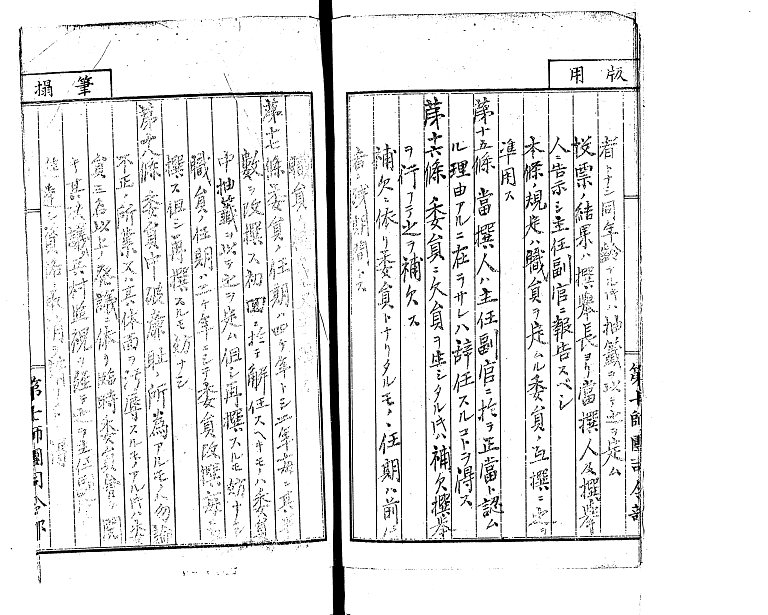 版用
者トナシ同年齢ナルトキハ抽籤ヲ以テ之ヲ定ム
投票ノ結果ハ撰挙長ヨリ當撰人及撰挙
人ニ告示シ主任副官ニ報告スベシ
本條ノ規定ハ職員ヲ定ムル委員ノ互撰ニ之ヲ
準用ス
第十五條 當撰人ハ主任副官ニ於テ正當ト認ム
ル理由アルニ在ラサレハ辞任スルコトヲ得ス
第十六條 委員ニ欠員ヲ生シタル時ハ補欠撰挙
ヲ行フテ之ヲ補欠ス
補欠ニ依リ委員トナリタルモノヽ任期ハ前
期間トス
第十師團司令部
筆搨
職員
第十七條 委員ノ任期ハ四ケ年トシ二年毎ニ其半
数ヲ改撰ス初回ニ於テ解任スヘキモノハ委員
中抽籤ヲ以テ之ヲ定ム但シ再撰スルモ妨ナシ
職員ノ任期ハ二ケ年ニシテ委員改撰毎ニ
撰ス但シ再撰スルモ妨ナシ
第十八條 委員中破廉耻ノ所為アルモノハ勿論
不正ノ所業又ハ其体面ヲ汚辱スルモノアル時ハ委
員三名以上ノ発議ニ依リ臨時委員會ヲ開
キ其決議
第十師團司令部